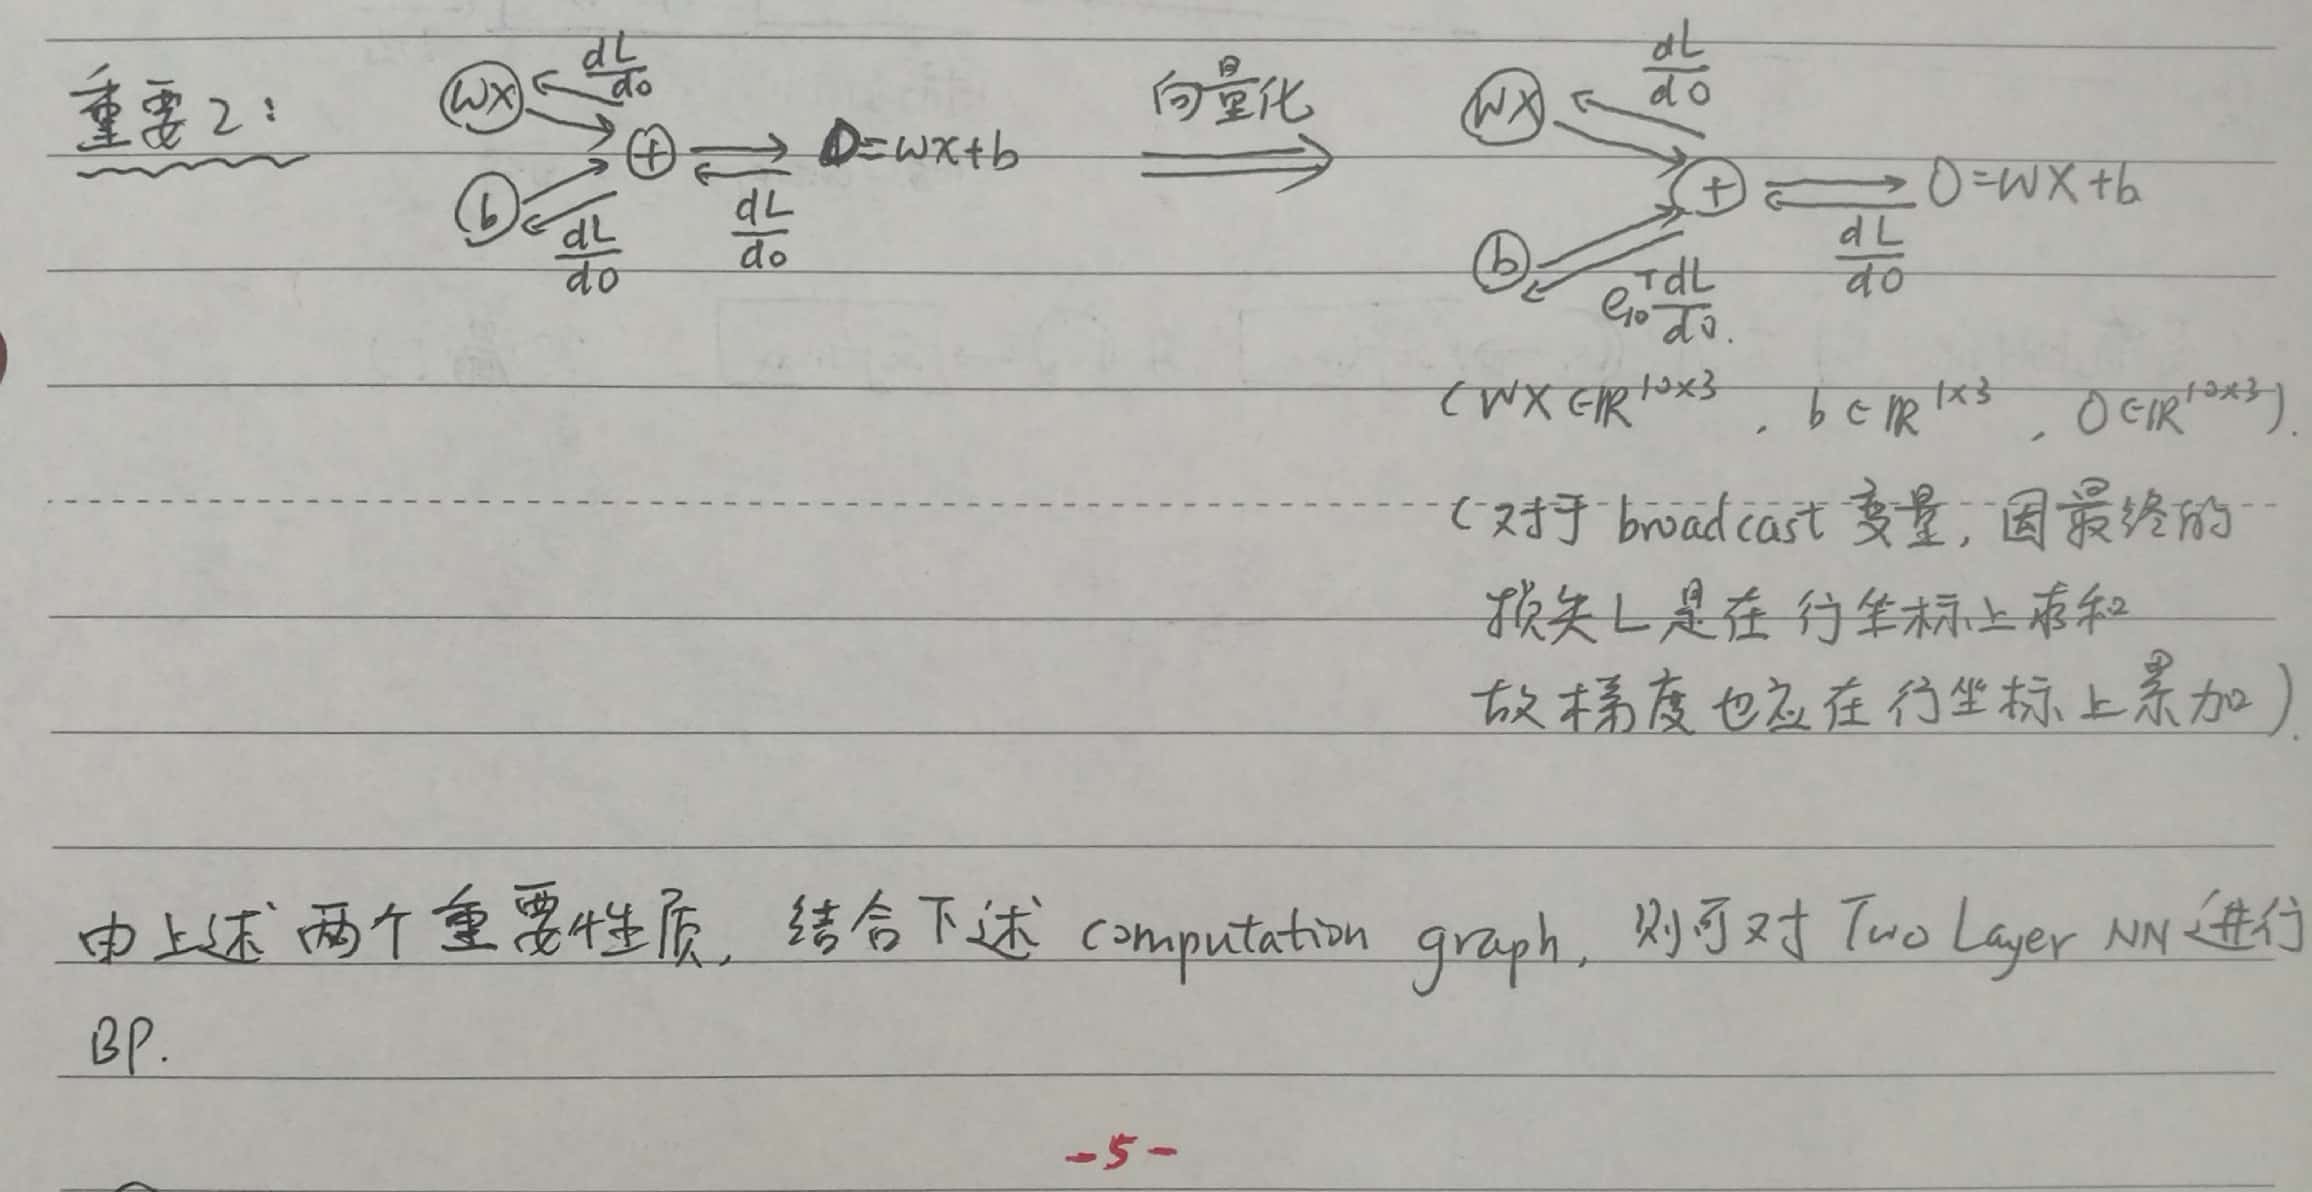 重要2:
wx dL/do
+ O=wx+b
b dL/do dL/do
向量化
WX dL/dO
+ O=WX+b
b e₁₀ᵀ dL/dO. dL/dO
(WX∈ℝ^10×3, b∈ℝ^1×3, O∈ℝ^10×3).
(对于broadcast变量,因最终的
损失L是在行坐标上求和
故梯度也应在行坐标上累加).
由上述两个重要性质,结合下述 computation graph,则可对 Two Layer NN进行
BP.
-5-